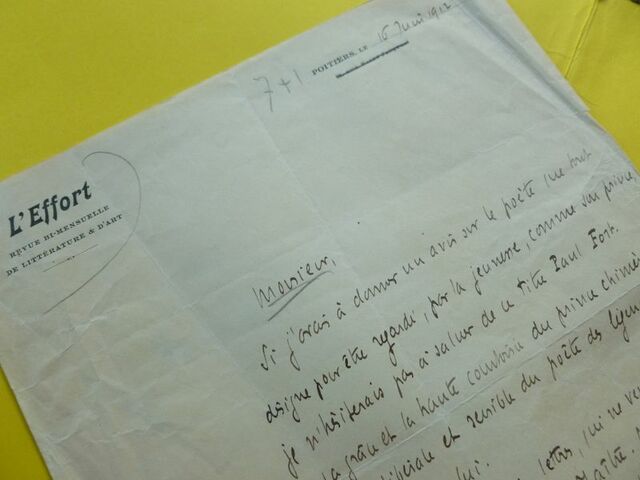 7+1
POITIERS, LE 16 Juin 1912
L'Effort
REVUE BI-MENSUELLE
DE LITTÉRATURE & D'ART
Monsieur,
Si j'avais à donner un avis sur le poète que tout
désigne pour être regardé, par la jeunesse, comme son prince,
je n'hésiterais pas à saluer de ce titre Paul Fort.
la grâce et la haute courtoisie du prince chimér
libérale et sensible du poète des légen
lui.
lettres, qui ne ve